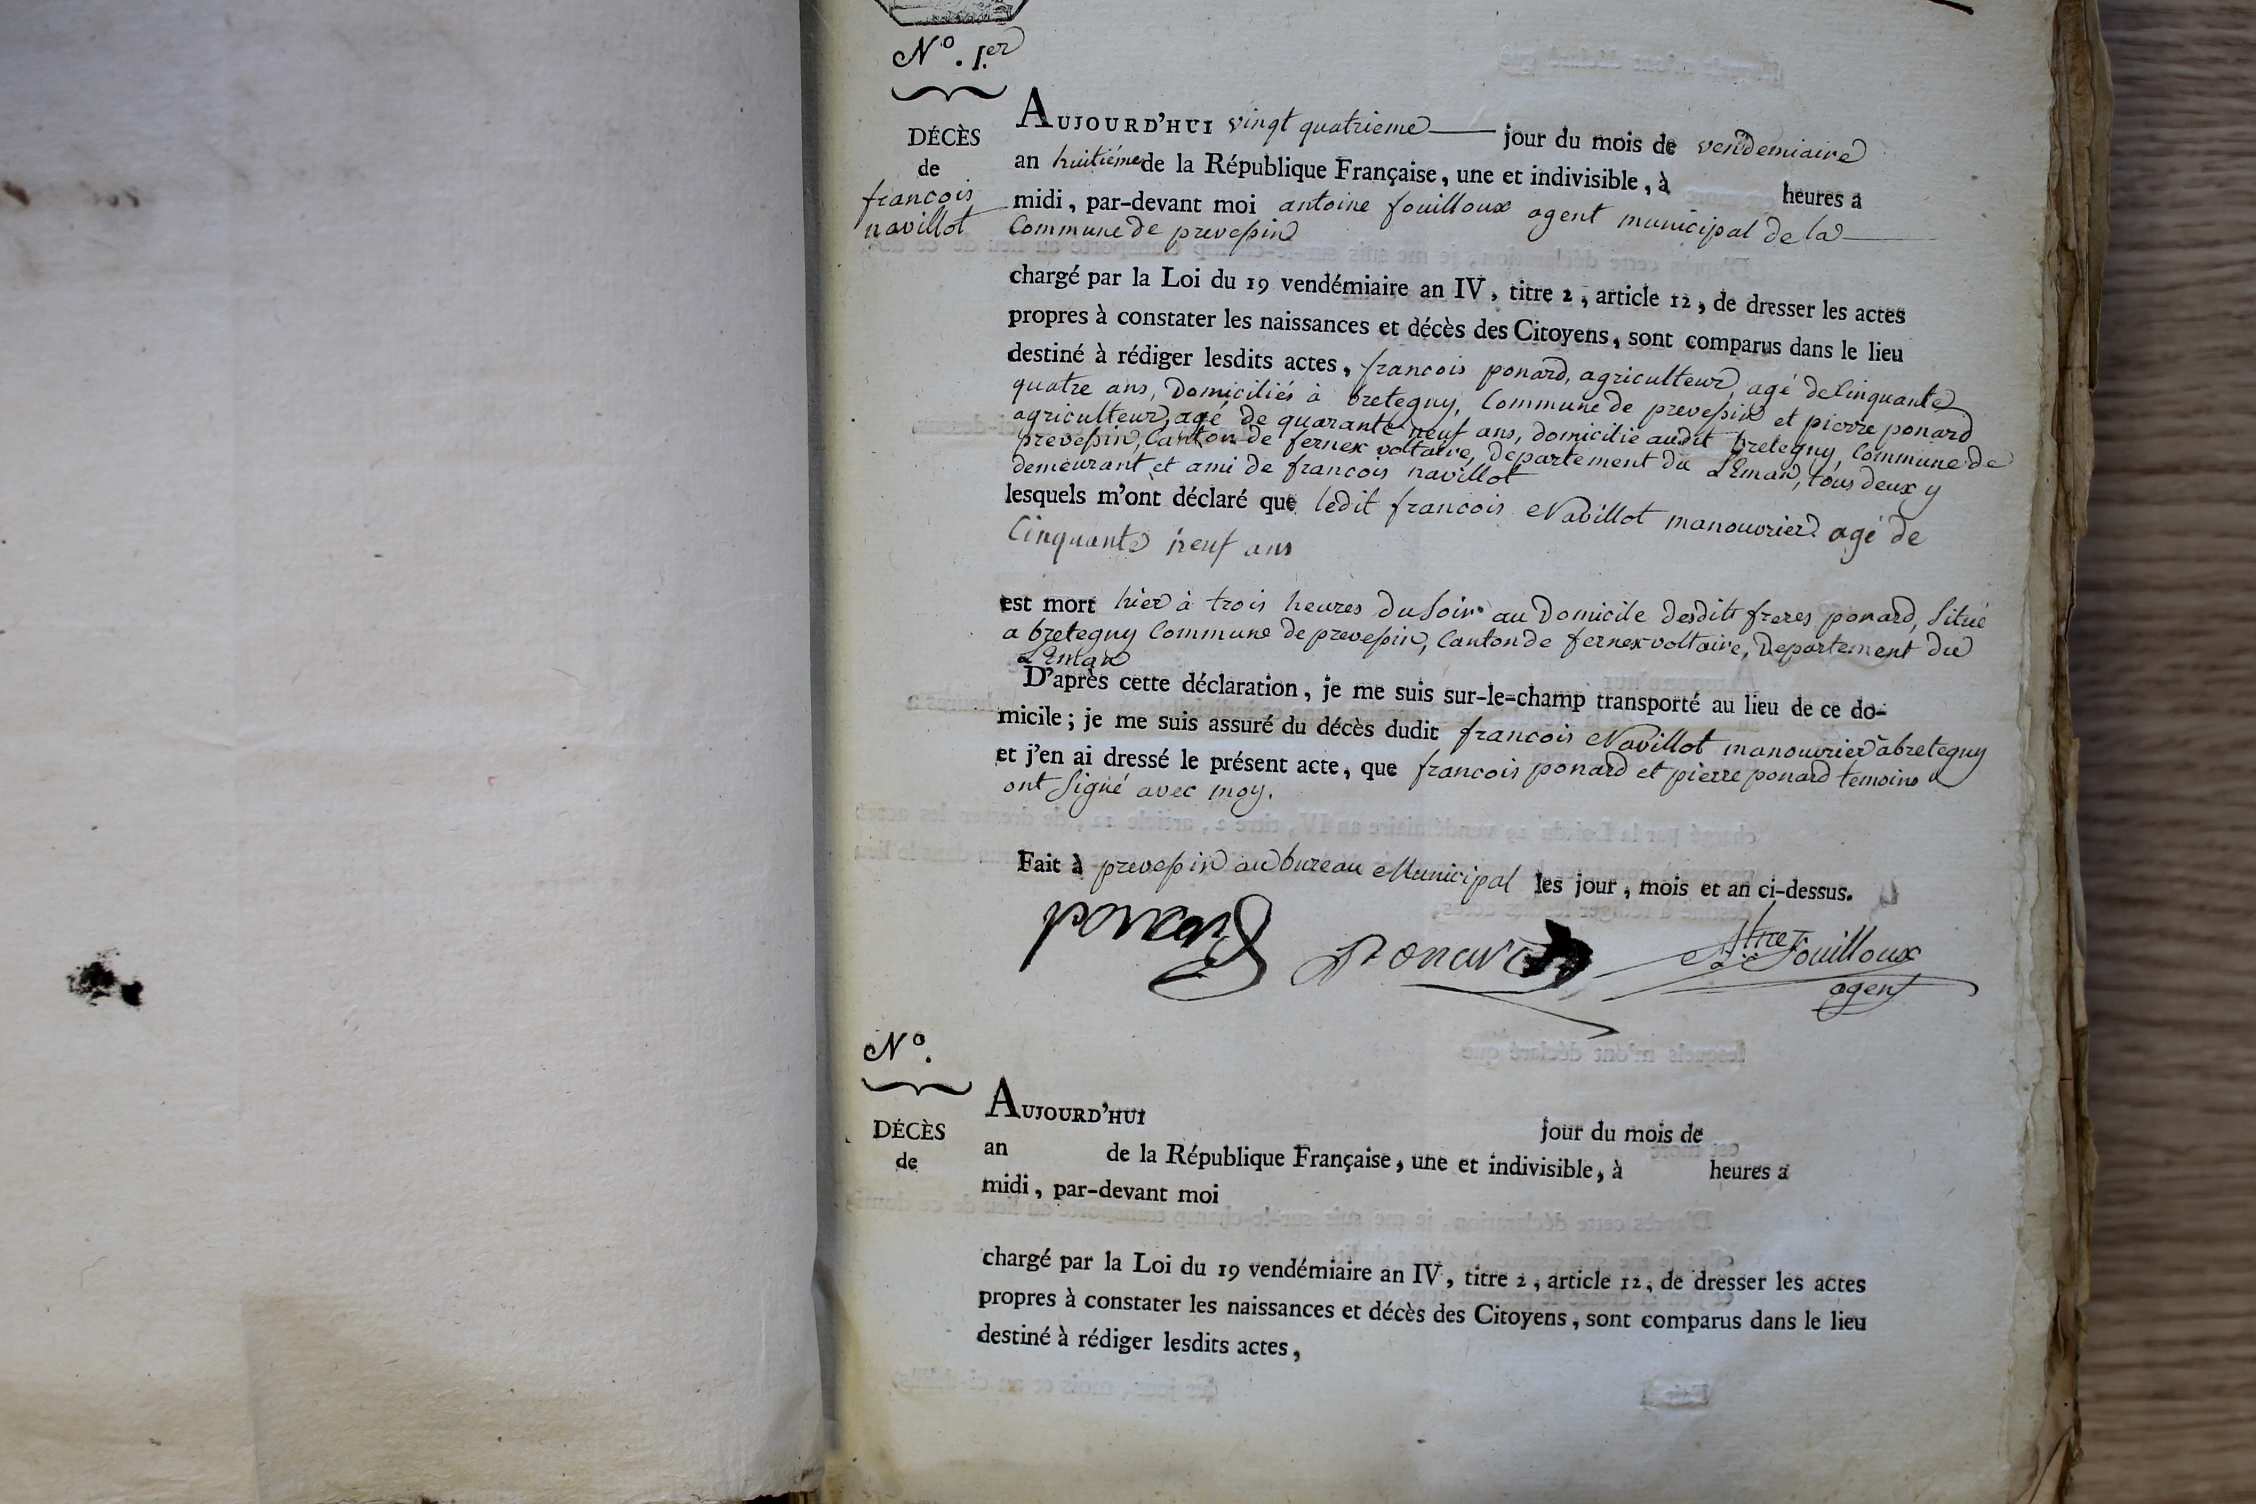 N.º 1.er
DÉCÈS
de
francois
navillot
AUJOURD'HUI vingt quatrieme jour du mois de vendemiaire
an huitiéme de la République Française, une et indivisible, à heures a
midi, par-devant moi antoine fouilloux agent municipal de la
Commune de prevessin
chargé par la Loi du 19 vendémiaire an IV, titre 2, article 12, de dresser les actes
propres à constater les naissances et décès des Citoyens, sont comparus dans le lieu
destiné à rédiger lesdits actes, francois ponard, agriculteur, agé de Cinquante
quatre ans, Domiciliés à bretegny, Commune de prevessin et pierre ponard
agriculteur, agé de quarante neuf ans, domicilié audit bretegny, Commune de
prevessin, Canton de fernex voltaire, Departement du LEman, tous deux y
demeurant et ami de francois navillot
lesquels m'ont déclaré que ledit francois Navillot manouvrier agé de
Cinquante neuf ans
est mort hier à trois heures du Soir au Domicile desdits freres ponard, Situé
a bretegny Commune de prevessin, Canton de fernex voltaire, Departement du
LEman
D'après cette déclaration, je me suis sur-le=champ transporté au lieu de ce do-
micile; je me suis assuré du décès dudit francois Navillot manouvrier à bretegny
et j'en ai dressé le présent acte, que francois ponard et pierre ponard temoins
ont Signé avec moy.
Fait à prevessin au bureau Municipal les jour, mois et an ci-dessus.
ponard
Ponard
Fouilloux
agent
N.º
DÉCÈS
de
AUJOURD'HUI jour du mois de
an de la République Française, une et indivisible, à heures a
midi, par-devant moi
chargé par la Loi du 19 vendémiaire an IV, titre 2, article 12, de dresser les actes
propres à constater les naissances et décès des Citoyens, sont comparus dans le lieu
destiné à rédiger lesdits actes,